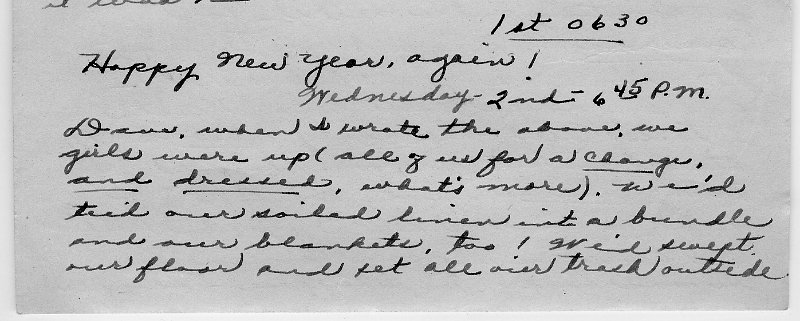 it was
1st 0630
Happy New Year, again!
Wednesday - 2nd - 6 45 P.M.
Dave, when I wrote the above, we
girls were up (all of us for a change,
and dressed, what's more). We'd
tied our soiled linen into a bundle
and our blankets, too! We'd swept
our floor and set all our trash outside